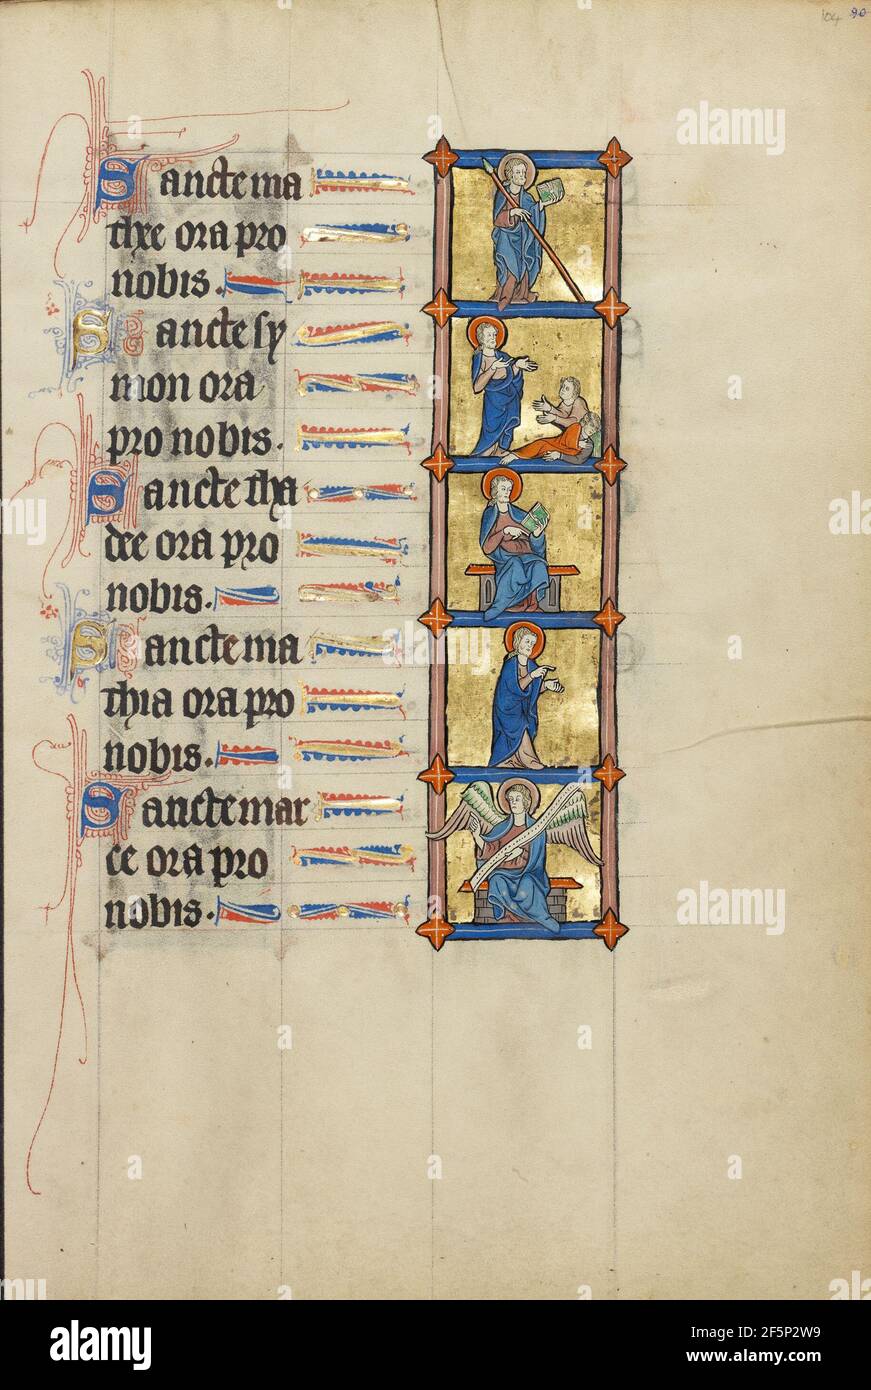 104 90
Sancte ma
thxe ora pro
nobis.
Sancte sy
mon ora
pro nobis.
Sancte tha
dee ora pro
nobis.
Sancte ma
thia ora pro
nobis.
Sancte mar
ce ora pro
nobis.
alamy
Image ID: 2F5P2W9
www.alamy.com